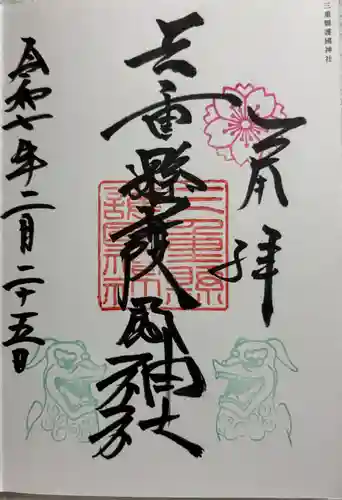 三重縣護國神社
奉拝
三重縣護國神社
三重縣護國神社
令和七年二月二十五日